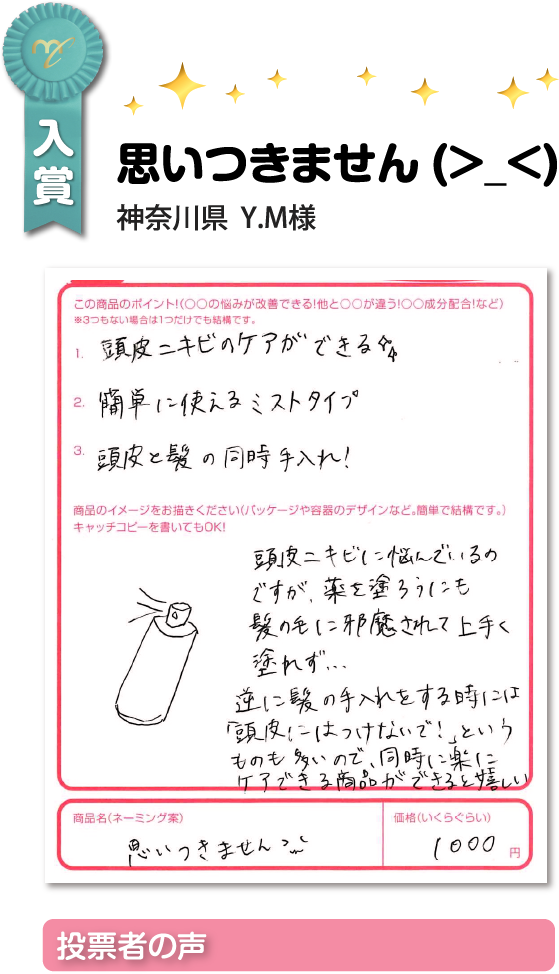 入賞
思いつきません(>_<)
神奈川県 Y.M様
この商品のポイント!(〇〇の悩みが改善できる!他と〇〇が違う!〇〇成分配合!など)
※3つもない場合は1つだけでも結構です。
1. 頭皮ニキビのケアができる
2. 簡単に使えるミストタイプ
3. 頭皮と髪の同時手入れ!
商品のイメージをお描きください(パッケージや容器のデザインなど。簡単で結構です。)
キャッチコピーを書いてもOK!
頭皮ニキビに悩んでいるの
ですが、薬を塗ろうにも
髪の毛に邪魔されて上手く
塗れず…
逆に髪の手入れをする時には
「頭皮にはつけないで!」という
ものも多いので、同時に楽に
ケアできる商品ができると嬉しい
商品名(ネーミング案)
思いつきません
価格(いくらぐらい)
1000円
投票者の声